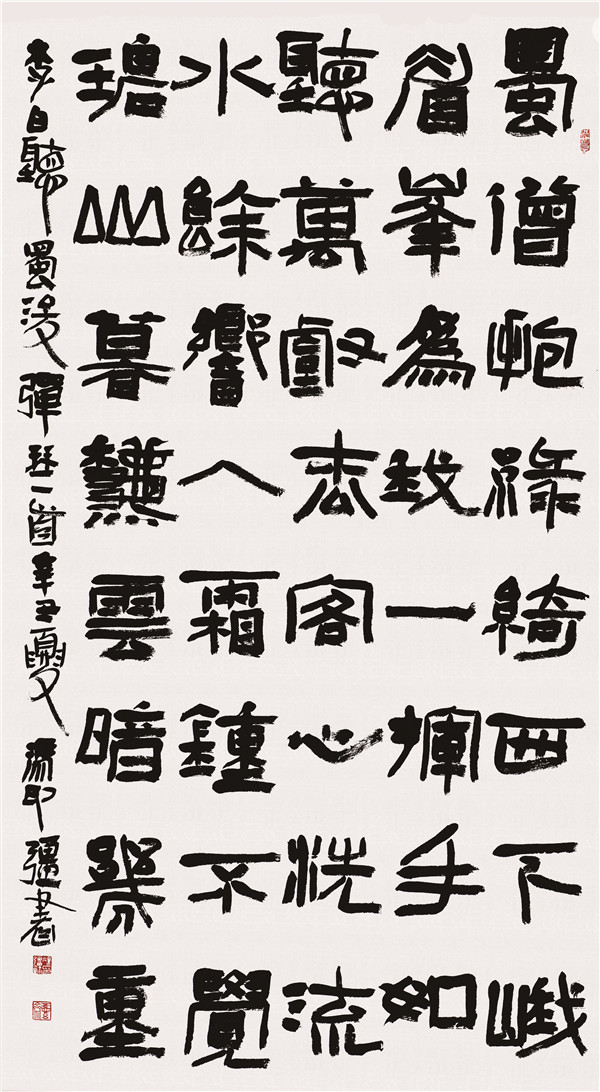 蜀僧抱綠綺西下峨
眉峯爲我一揮手如
聽萬壑松客心洗流
水餘響入霜鍾不覺
碧山暮秋雲暗幾重
李白聽蜀浚彈琴一首辛丑夏彊書